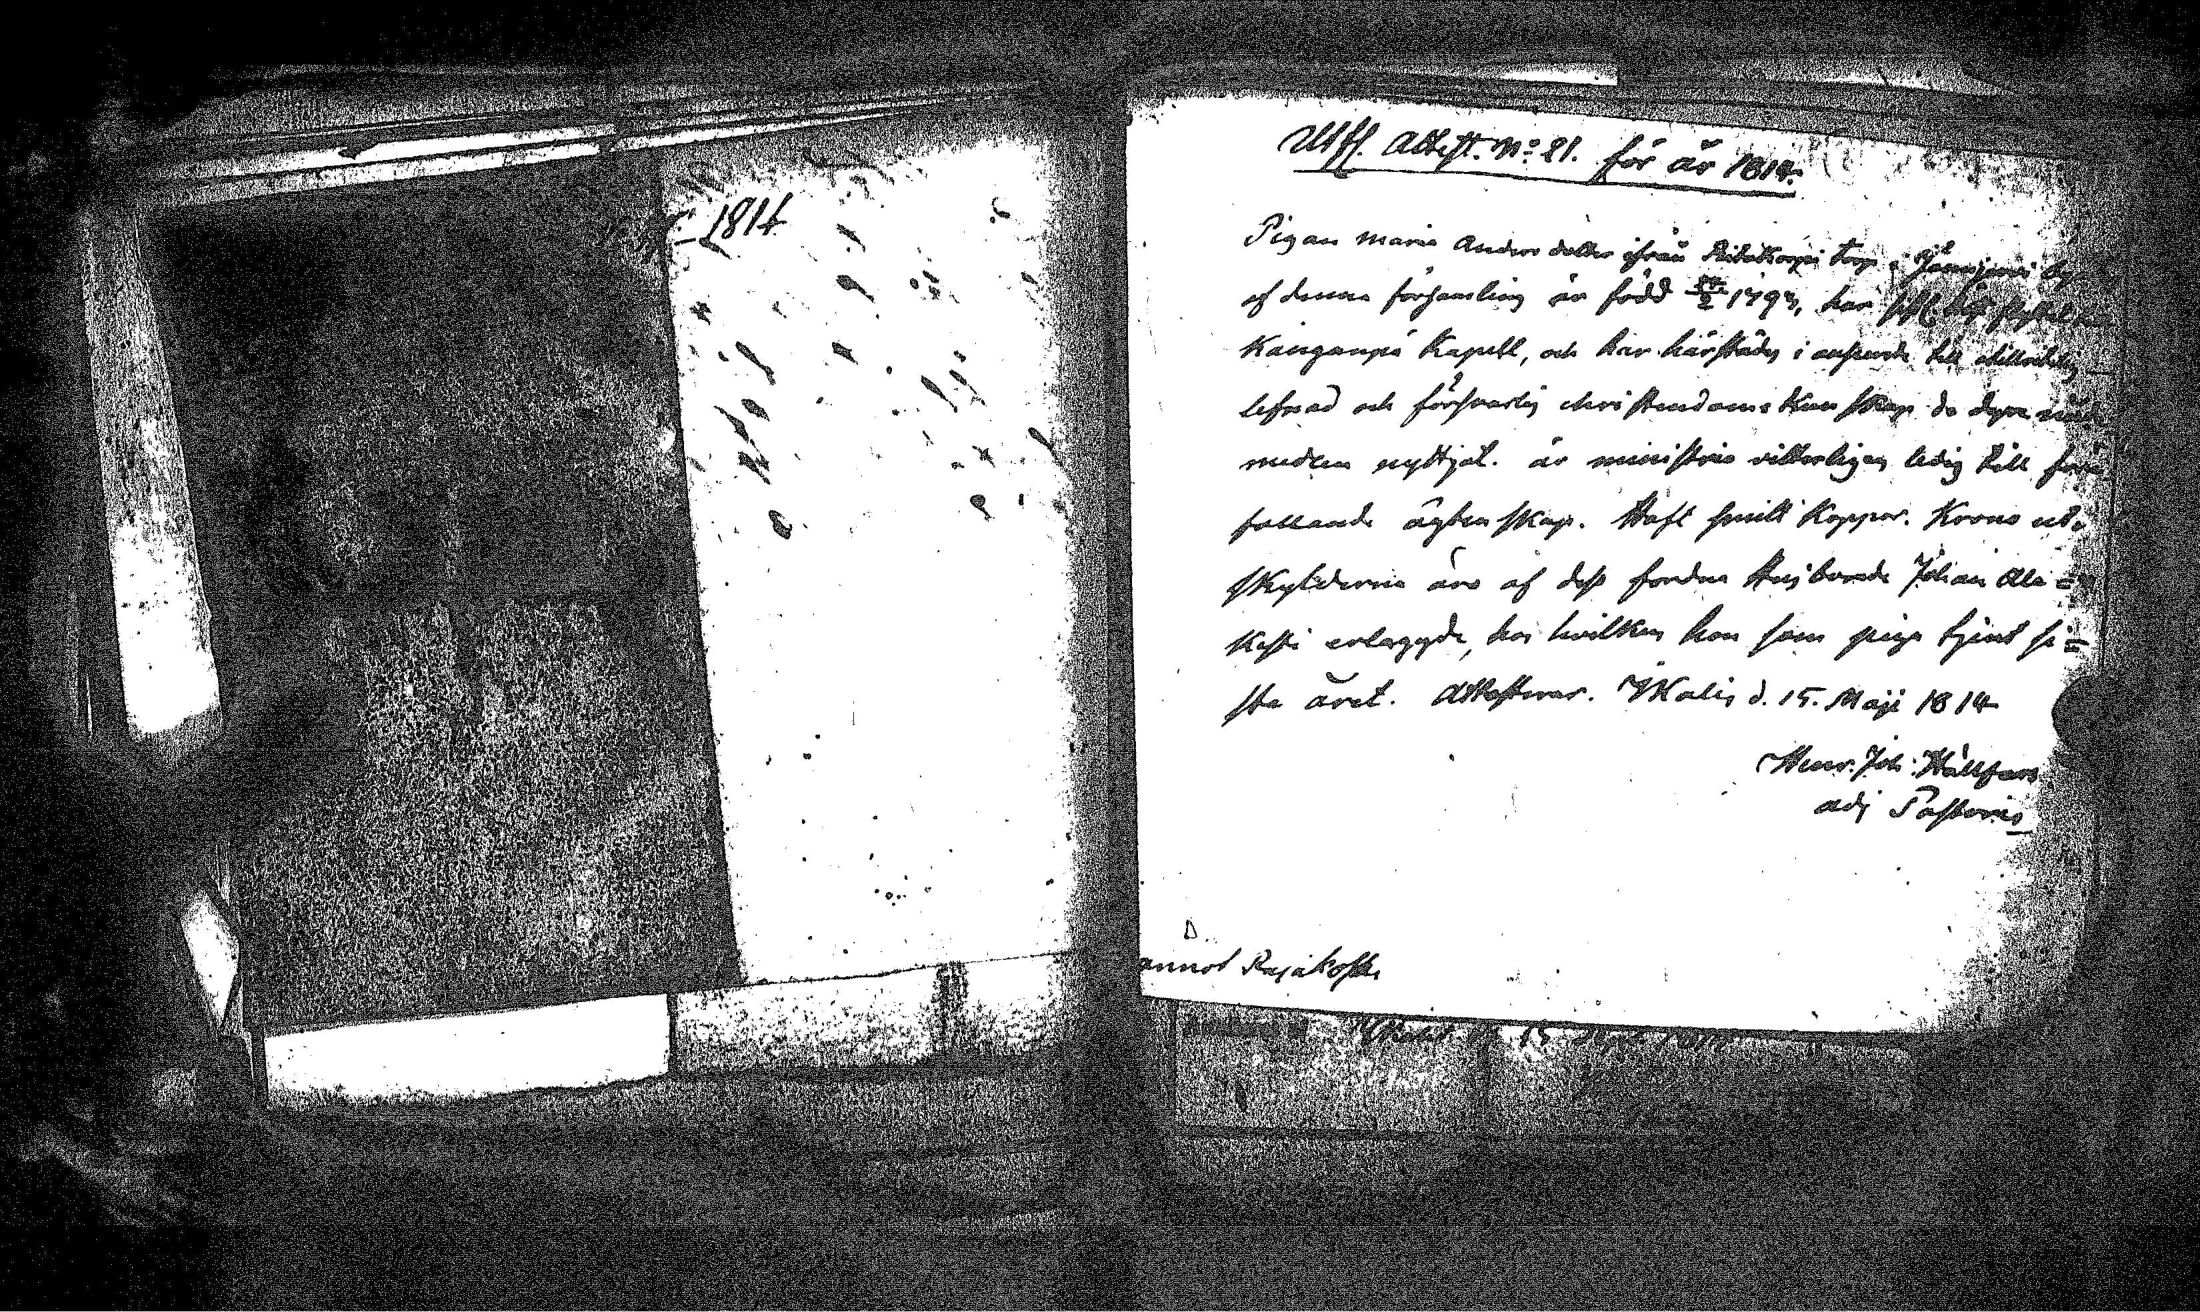 1814
Utfl. Attest. No: 21. för år 1814.
Pigan Maria Anders dotter ifrån torp i Jämijervi by
af denna församling är född 1793, har
Kanganpä Kapell, och har härstädes i anseende till
lefnad och försvarlig christendoms kunskap de dyra
medlen nyttjat. är ministris vitterligen ledig till före
fallande ägtenskap. Haft små Koppor. Krono ut-
skylderna äro af dess fordna Husbonde Johan Ala=
kesti erlaggde, hos hvilken hon som piga tjent si=
sta året. Attesterar. Ikalis d. 15. Maji 1814
Henr. Joh: Hällfors
adj Pastoris
annot Rajakoski